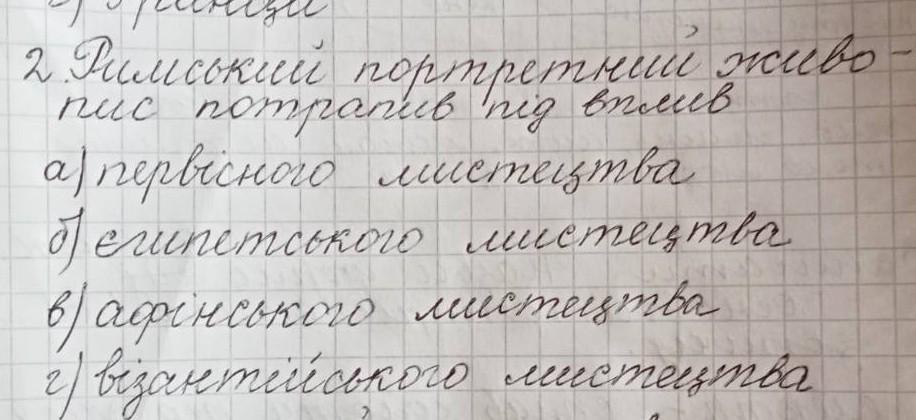 2. Римський портретний живо-
пис потрапив під вплив
а) первісного мистецтва
б) єгипетського мистецтва
в) афінського мистецтва
г) візантійського мистецтва